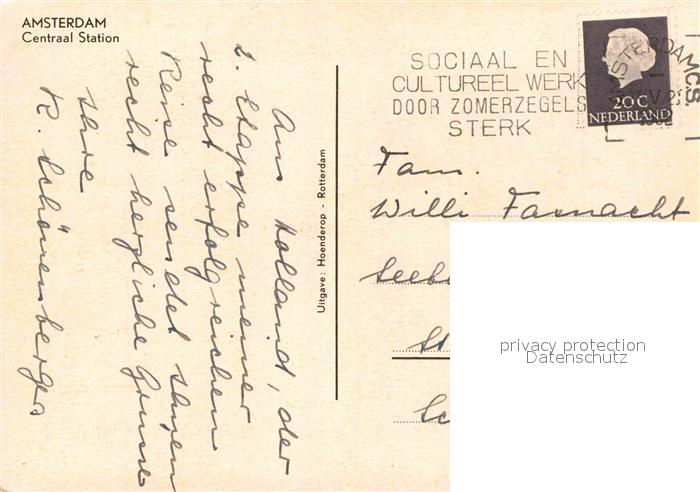 AMSTERDAM
Centraal Station
SOCIAAL EN
CULTUREEL WERK
DOOR ZOMERZEGELS
STERK
AMSTERDAM CS
20 C
NEDERLAND
Aus Holland, der
2. Etappe meiner
recht erfolgreichen
Reise sendet Ihnen
recht herzliche Grüsse
Ihre
R. Schönenberger
Uitgave: Hoenderop - Rotterdam
Fam.
Willi Fasnacht
privacy protection
Datenschutz